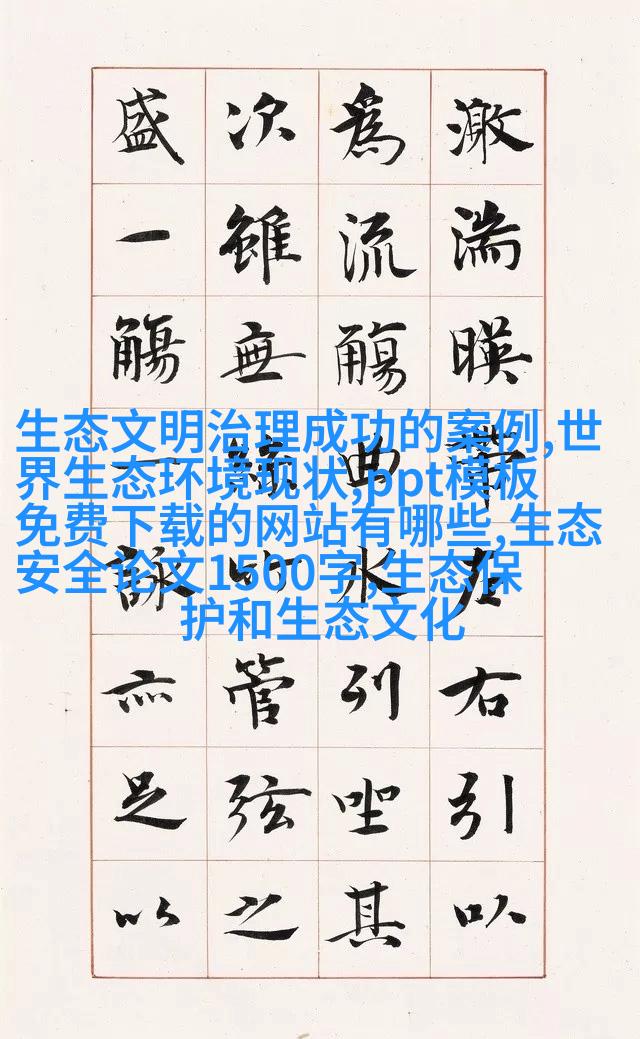 激湍暎帶左右引以
為流觴曲水列坐其
次雖無絲竹管弦之
盛一觴一詠亦足以
生态文明治理成功的案例,世
界生态环境现状,ppt模板
免费下载的网站有哪些,生态
安全论文1500字,生态保
护和生态文化